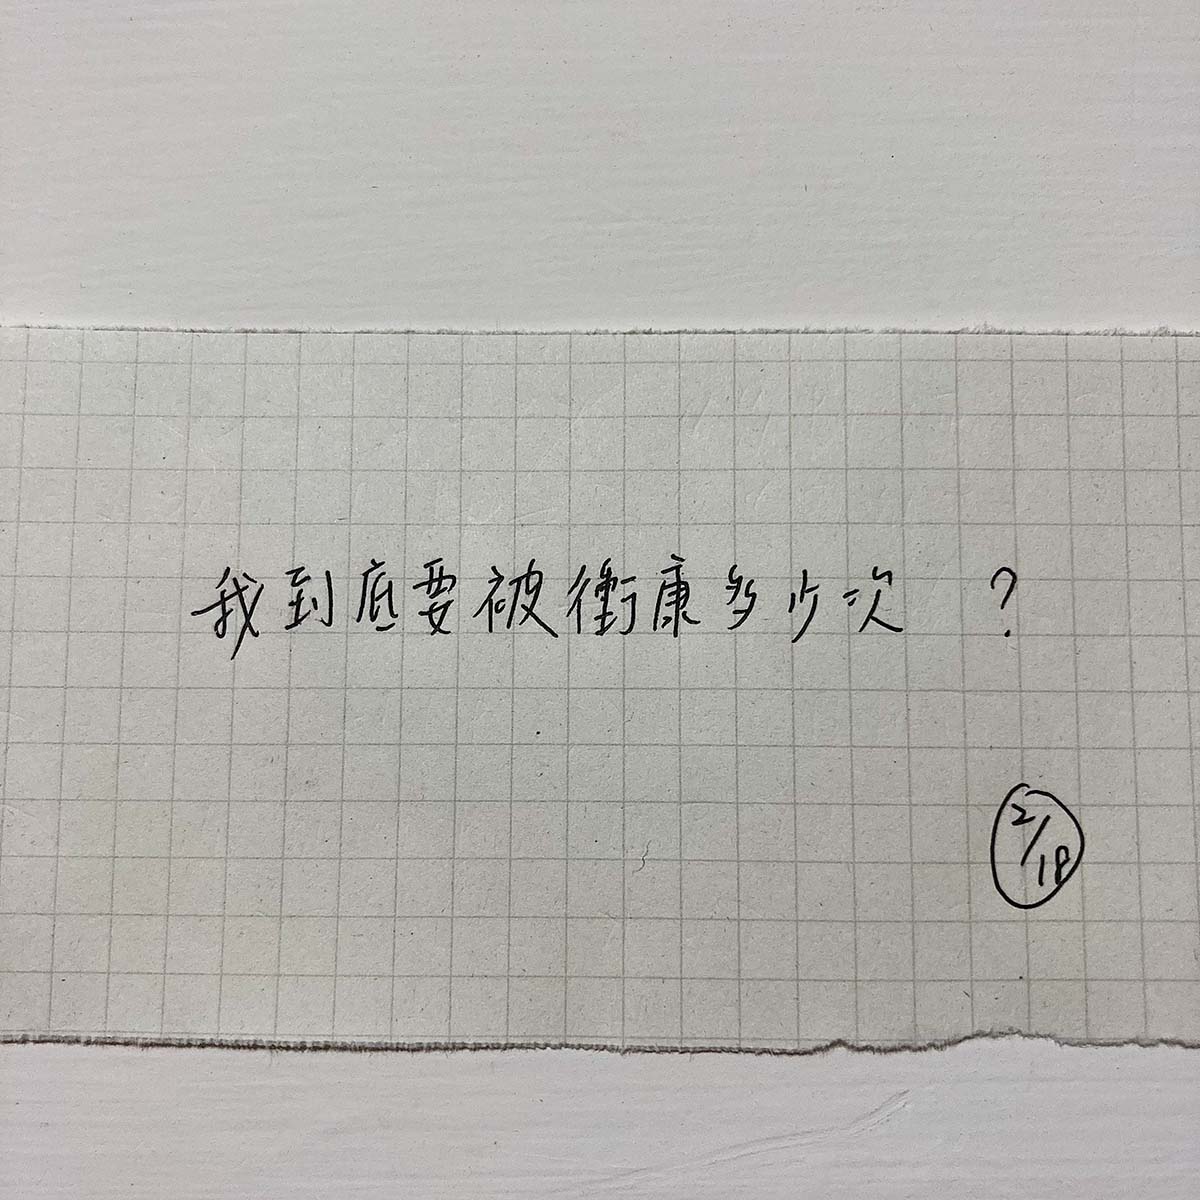 我到底要被衝康多少次 ?
2/18